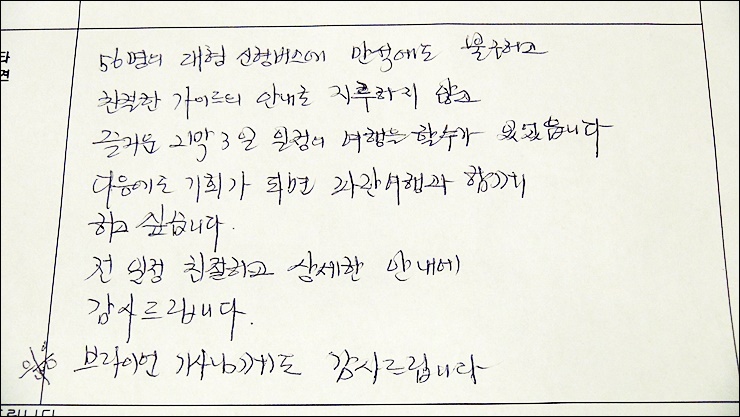 56명의 대형 신형버스에 만석에도 불구하고
타
견
친절한 가이드의 안내로 지루하지 않고
즐거운 3일 일정의 여행을 할수가 있었습니다
다음에도 기회가 되면 여행과 함께
하고 싶습니다.
전 일정 친절하고 상세한 안내에
감사드립니다.
브라이언 기사님께도 감사드립니다
드립니다